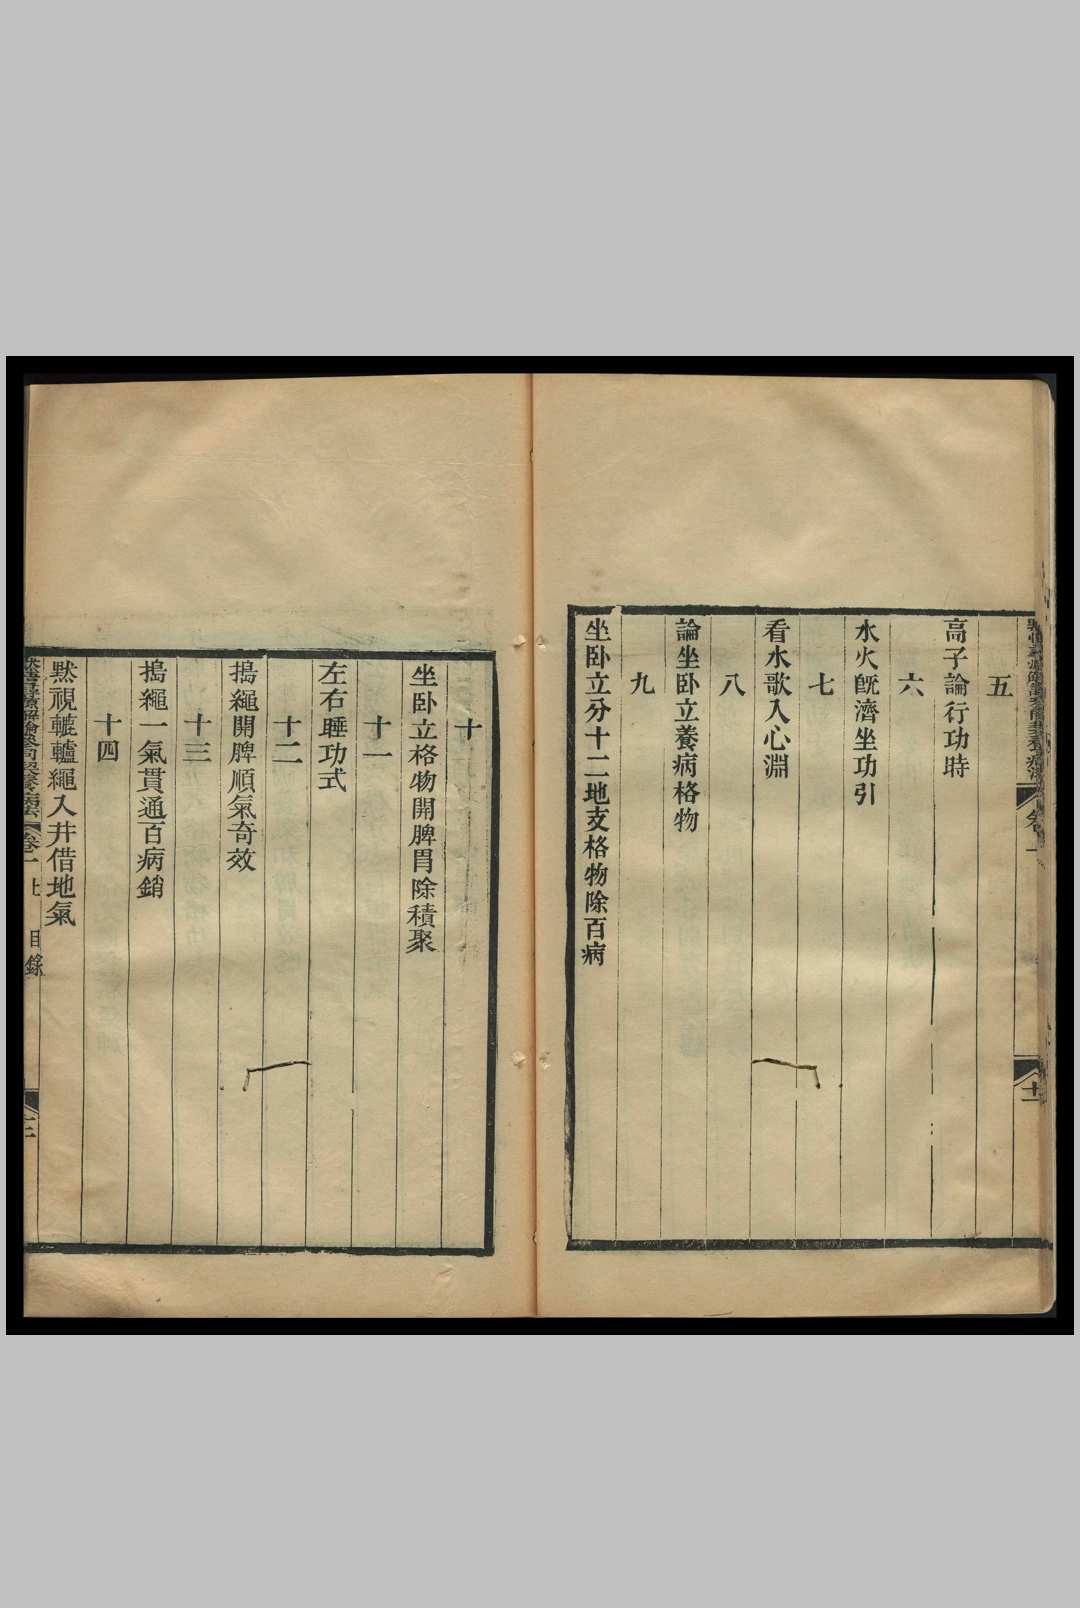 五
高子論行功時
六
水火旣濟坐功引
七
看水歌入心淵
八
論坐卧立養病格物
九
坐卧立分十二地支格物除百病
卷一
十一
十
坐卧立格物開脾胃除積聚
十一
左右睡功式
十二
搗繩開脾順氣奇效
十三
搗繩一氣貫通百病銷
十四
默視轆轤繩入井借地氣
卷一
目錄